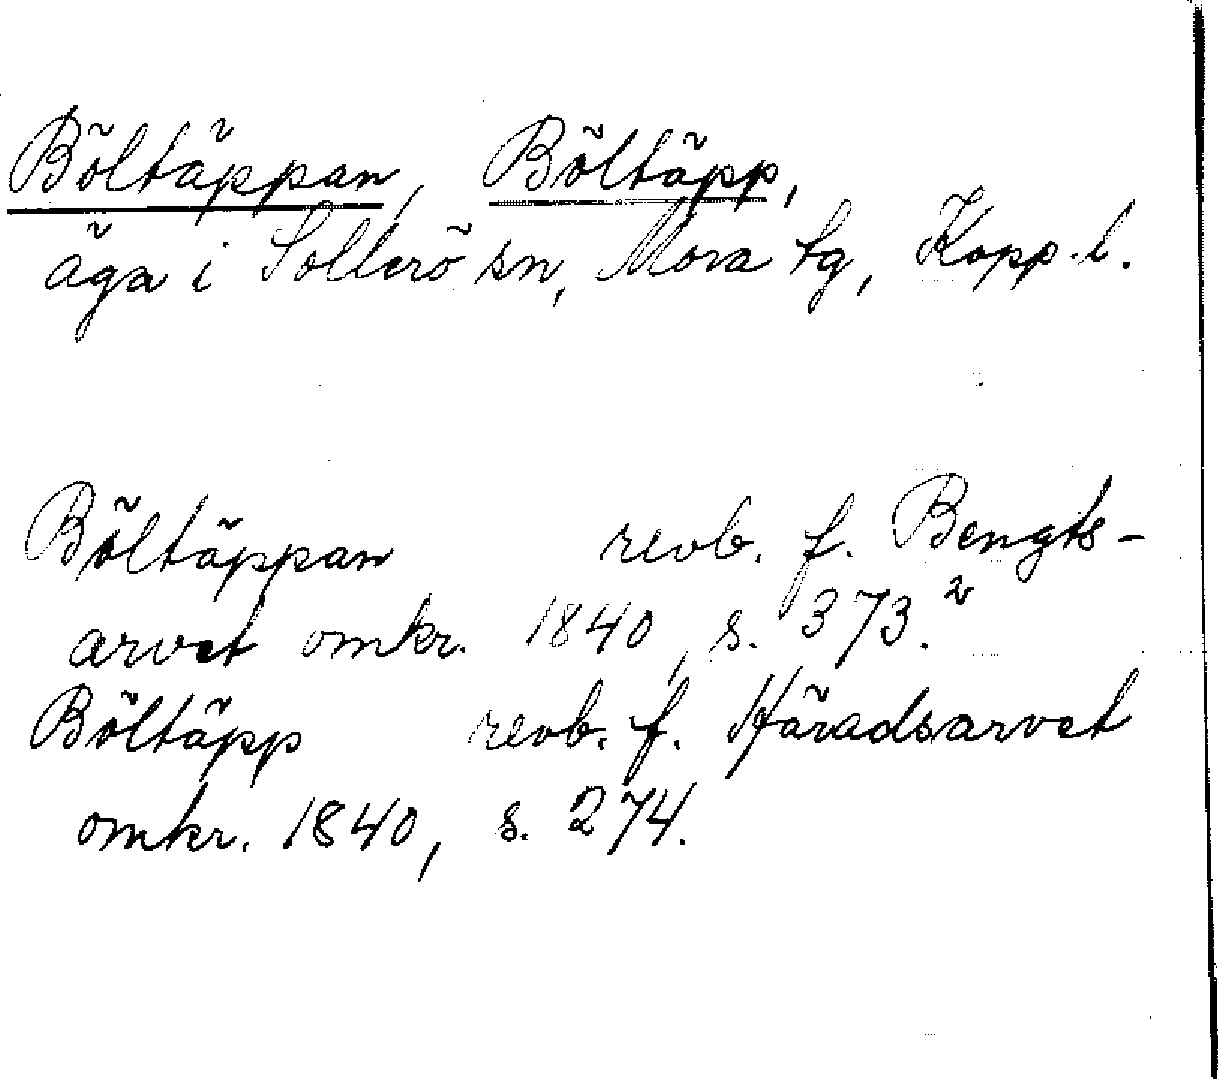 Böltäppan, Böltäpp,
äga i Sollerö sn, Mora tg, Kopp. l.
Böltäppan revb. f. Bengts-
arvet omkr. 1840, s. 373.²
Böltäpp revb. f. Häradsarvet
omkr. 1840, s. 274.